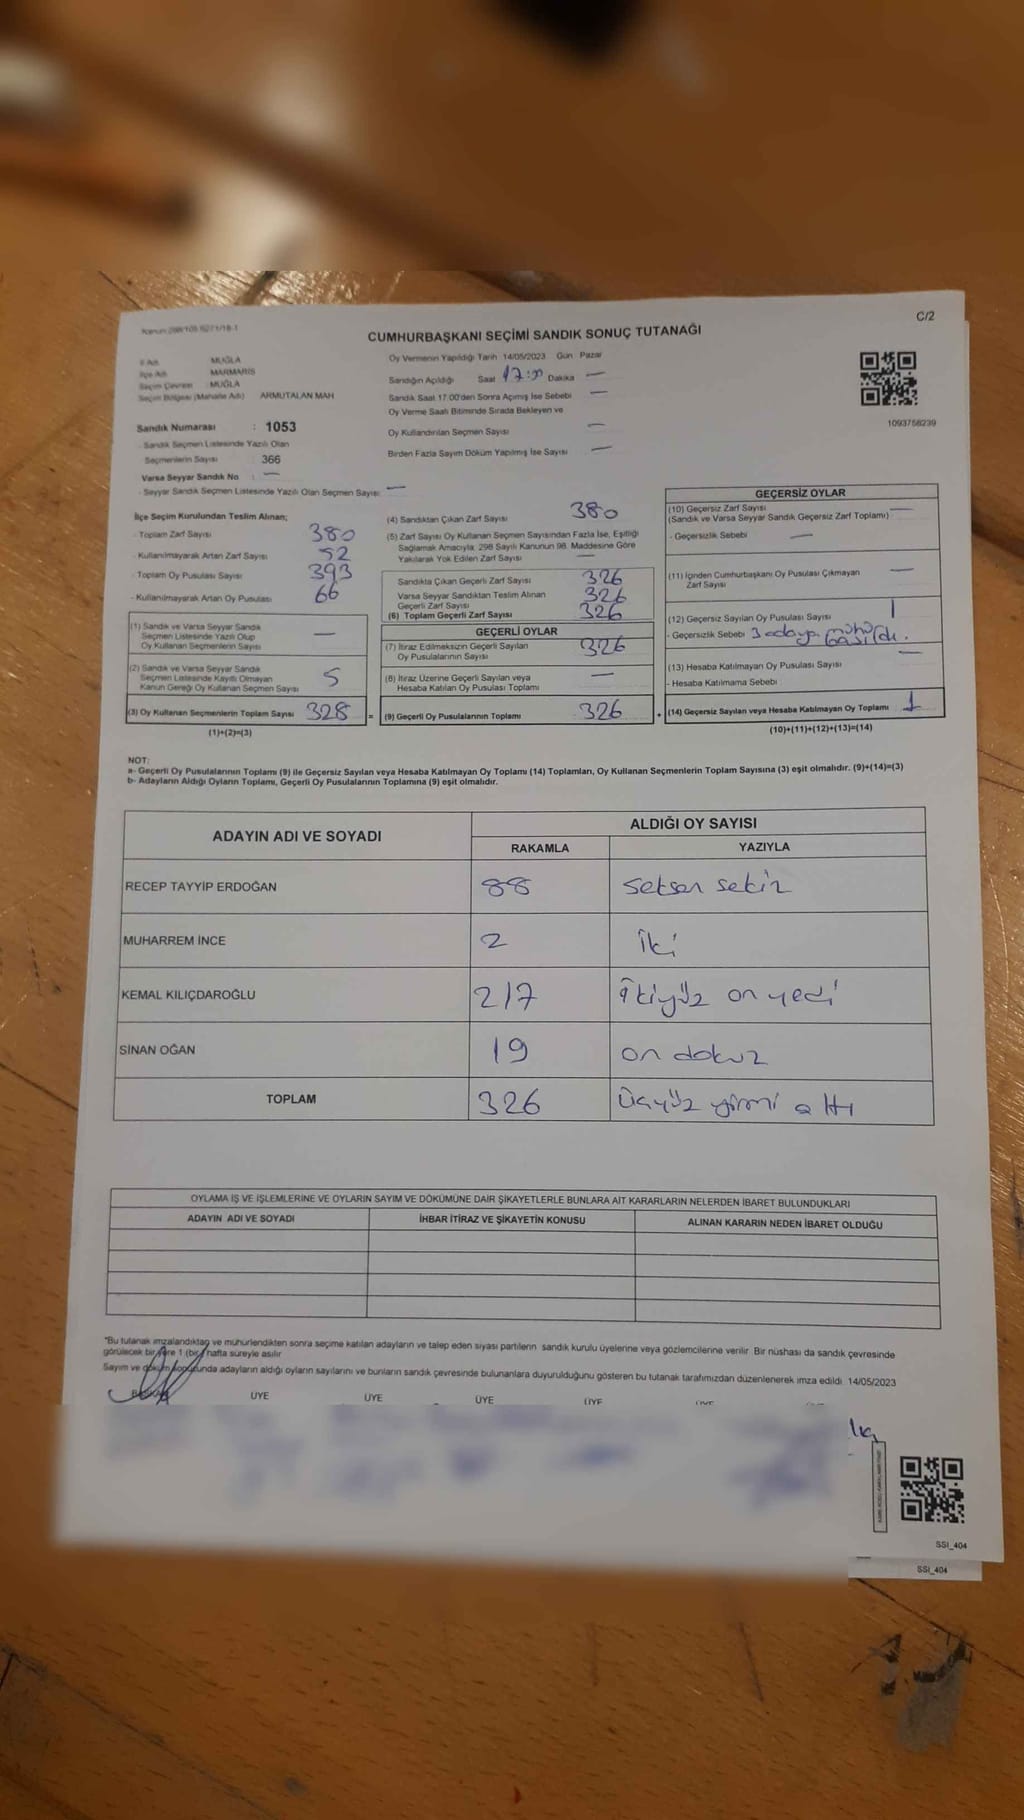 C/2
CUMHURBAŞKANI SEÇİMİ SANDIK SONUÇ TUTANAĞI
İl Adı MUĞLA
İlçe Adı MARMARİS
Seçim Çevresi : MUĞLA
Seçim Bölgesi (Mahalle Adı) ARMUTALAN MAH
Sandık Numarası : 1053
- Sandık Seçmen Listesinde Yazılı Olan
Seçmenlerin Sayısı : 366
Varsa Seyyar Sandık No : —
- Seyyar Sandık Seçmen Listesinde Yazılı Olan Seçmen Sayısı: —
Oy Vermenin Yapıldığı Tarih 14/05/2023 Gün Pazar
Sandığın Açıldığı Saat 17:00 Dakika —
Sandık Saat 17.00'den Sonra Açılmış İse Sebebi —
Oy Verme Saati Bitiminde Sırada Bekleyen ve
Oy Kullandırılan Seçmen Sayısı —
Birden Fazla Sayım Döküm Yapılmış İse Sayısı —
1093758239
İlçe Seçim Kurulundan Teslim Alınan;
- Toplam Zarf Sayısı 380
- Kullanılmayarak Artan Zarf Sayısı 52
- Toplam Oy Pusulası Sayısı 393
- Kullanılmayarak Artan Oy Pusulası 66
(1) Sandık ve Varsa Seyyar Sandık
Seçmen Listesinde Yazılı Olup
Oy Kullanan Seçmenlerin Sayısı —
(2) Sandık ve Varsa Seyyar Sandık
Seçmen Listesinde Kayıtlı Olmayan
Kanun Gereği Oy Kullanan Seçmen Sayısı 5
(3) Oy Kullanan Seçmenlerin Toplam Sayısı 328 =
(1)+(2)=(3)
(4) Sandıktan Çıkan Zarf Sayısı 380
(5) Zarf Sayısı Oy Kullanan Seçmen Sayısından Fazla İse, Eşitliği
Sağlamak Amacıyla; 298 Sayılı Kanunun 98. Maddesine Göre
Yakılarak Yok Edilen Zarf Sayısı —
Sandıkta Çıkan Geçerli Zarf Sayısı 326
Varsa Seyyar Sandıktan Teslim Alınan
Geçerli Zarf Sayısı 326
(6) Toplam Geçerli Zarf Sayısı 326
GEÇERLİ OYLAR
(7) İtiraz Edilmeksizin Geçerli Sayılan
Oy Pusulalarının Sayısı 326
(8) İtiraz Üzerine Geçerli Sayılan veya
Hesaba Katılan Oy Pusulası Toplamı —
(9) Geçerli Oy Pusulalarının Toplamı 326 +
GEÇERSİZ OYLAR
(10) Geçersiz Zarf Sayısı —
(Sandık ve Varsa Seyyar Sandık Geçersiz Zarf Toplamı)
- Geçersizlik Sebebi —
(11) İçinden Cumhurbaşkanı Oy Pusulası Çıkmayan
Zarf Sayısı —
(12) Geçersiz Sayılan Oy Pusulası Sayısı 1
- Geçersizlik Sebebi 3 adaya mühür basıldı.
(13) Hesaba Katılmayan Oy Pusulası Sayısı —
- Hesaba Katılmama Sebebi
(14) Geçersiz Sayılan veya Hesaba Katılmayan Oy Toplamı 1
(10)+(11)+(12)+(13)=(14)
NOT:
a- Geçerli Oy Pusulalarının Toplamı (9) ile Geçersiz Sayılan veya Hesaba Katılmayan Oy Toplamı (14) Toplamları, Oy Kullanan Seçmenlerin Toplam Sayısına (3) eşit olmalıdır. (9)+(14)=(3)
b- Adayların Aldığı Oyların Toplamı, Geçerli Oy Pusulalarının Toplamına (9) eşit olmalıdır.
ADAYIN ADI VE SOYADI ALDIĞI OY SAYISI
RAKAMLA YAZIYLA
RECEP TAYYİP ERDOĞAN 88 Seksen sekiz
MUHARREM İNCE 2 İki
KEMAL KILIÇDAROĞLU 217 İkiyüz on yedi
SİNAN OĞAN 19 on dokuz
TOPLAM 326 Üçyüz yirmi altı
OYLAMA İŞ VE İŞLEMLERİNE VE OYLARIN SAYIM VE DÖKÜMÜNE DAİR ŞİKAYETLERLE BUNLARA AİT KARARLARIN NELERDEN İBARET BULUNDUKLARI
ADAYIN ADI VE SOYADI İHBAR İTİRAZ VE ŞİKAYETİN KONUSU ALINAN KARARIN NEDEN İBARET OLDUĞU
*Bu tutanak imzalandıktan ve mühürlendikten sonra seçime katılan adayların ve talep eden siyasi partilerin sandık kurulu üyelerine veya gözlemcilerine verilir. Bir nüshası da sandık çevresinde
görülecek bir yere 1 (bir) hafta süreyle asılır
Sayım ve döküm sonucunda adayların aldığı oyların sayılarını ve bunların sandık çevresinde bulunanlara duyurulduğunu gösteren bu tutanak tarafımızdan düzenlenerek imza edildi. 14/05/2023
BAŞKAN ÜYE ÜYE ÜYE ÜYE
SSI_404
SSI_404